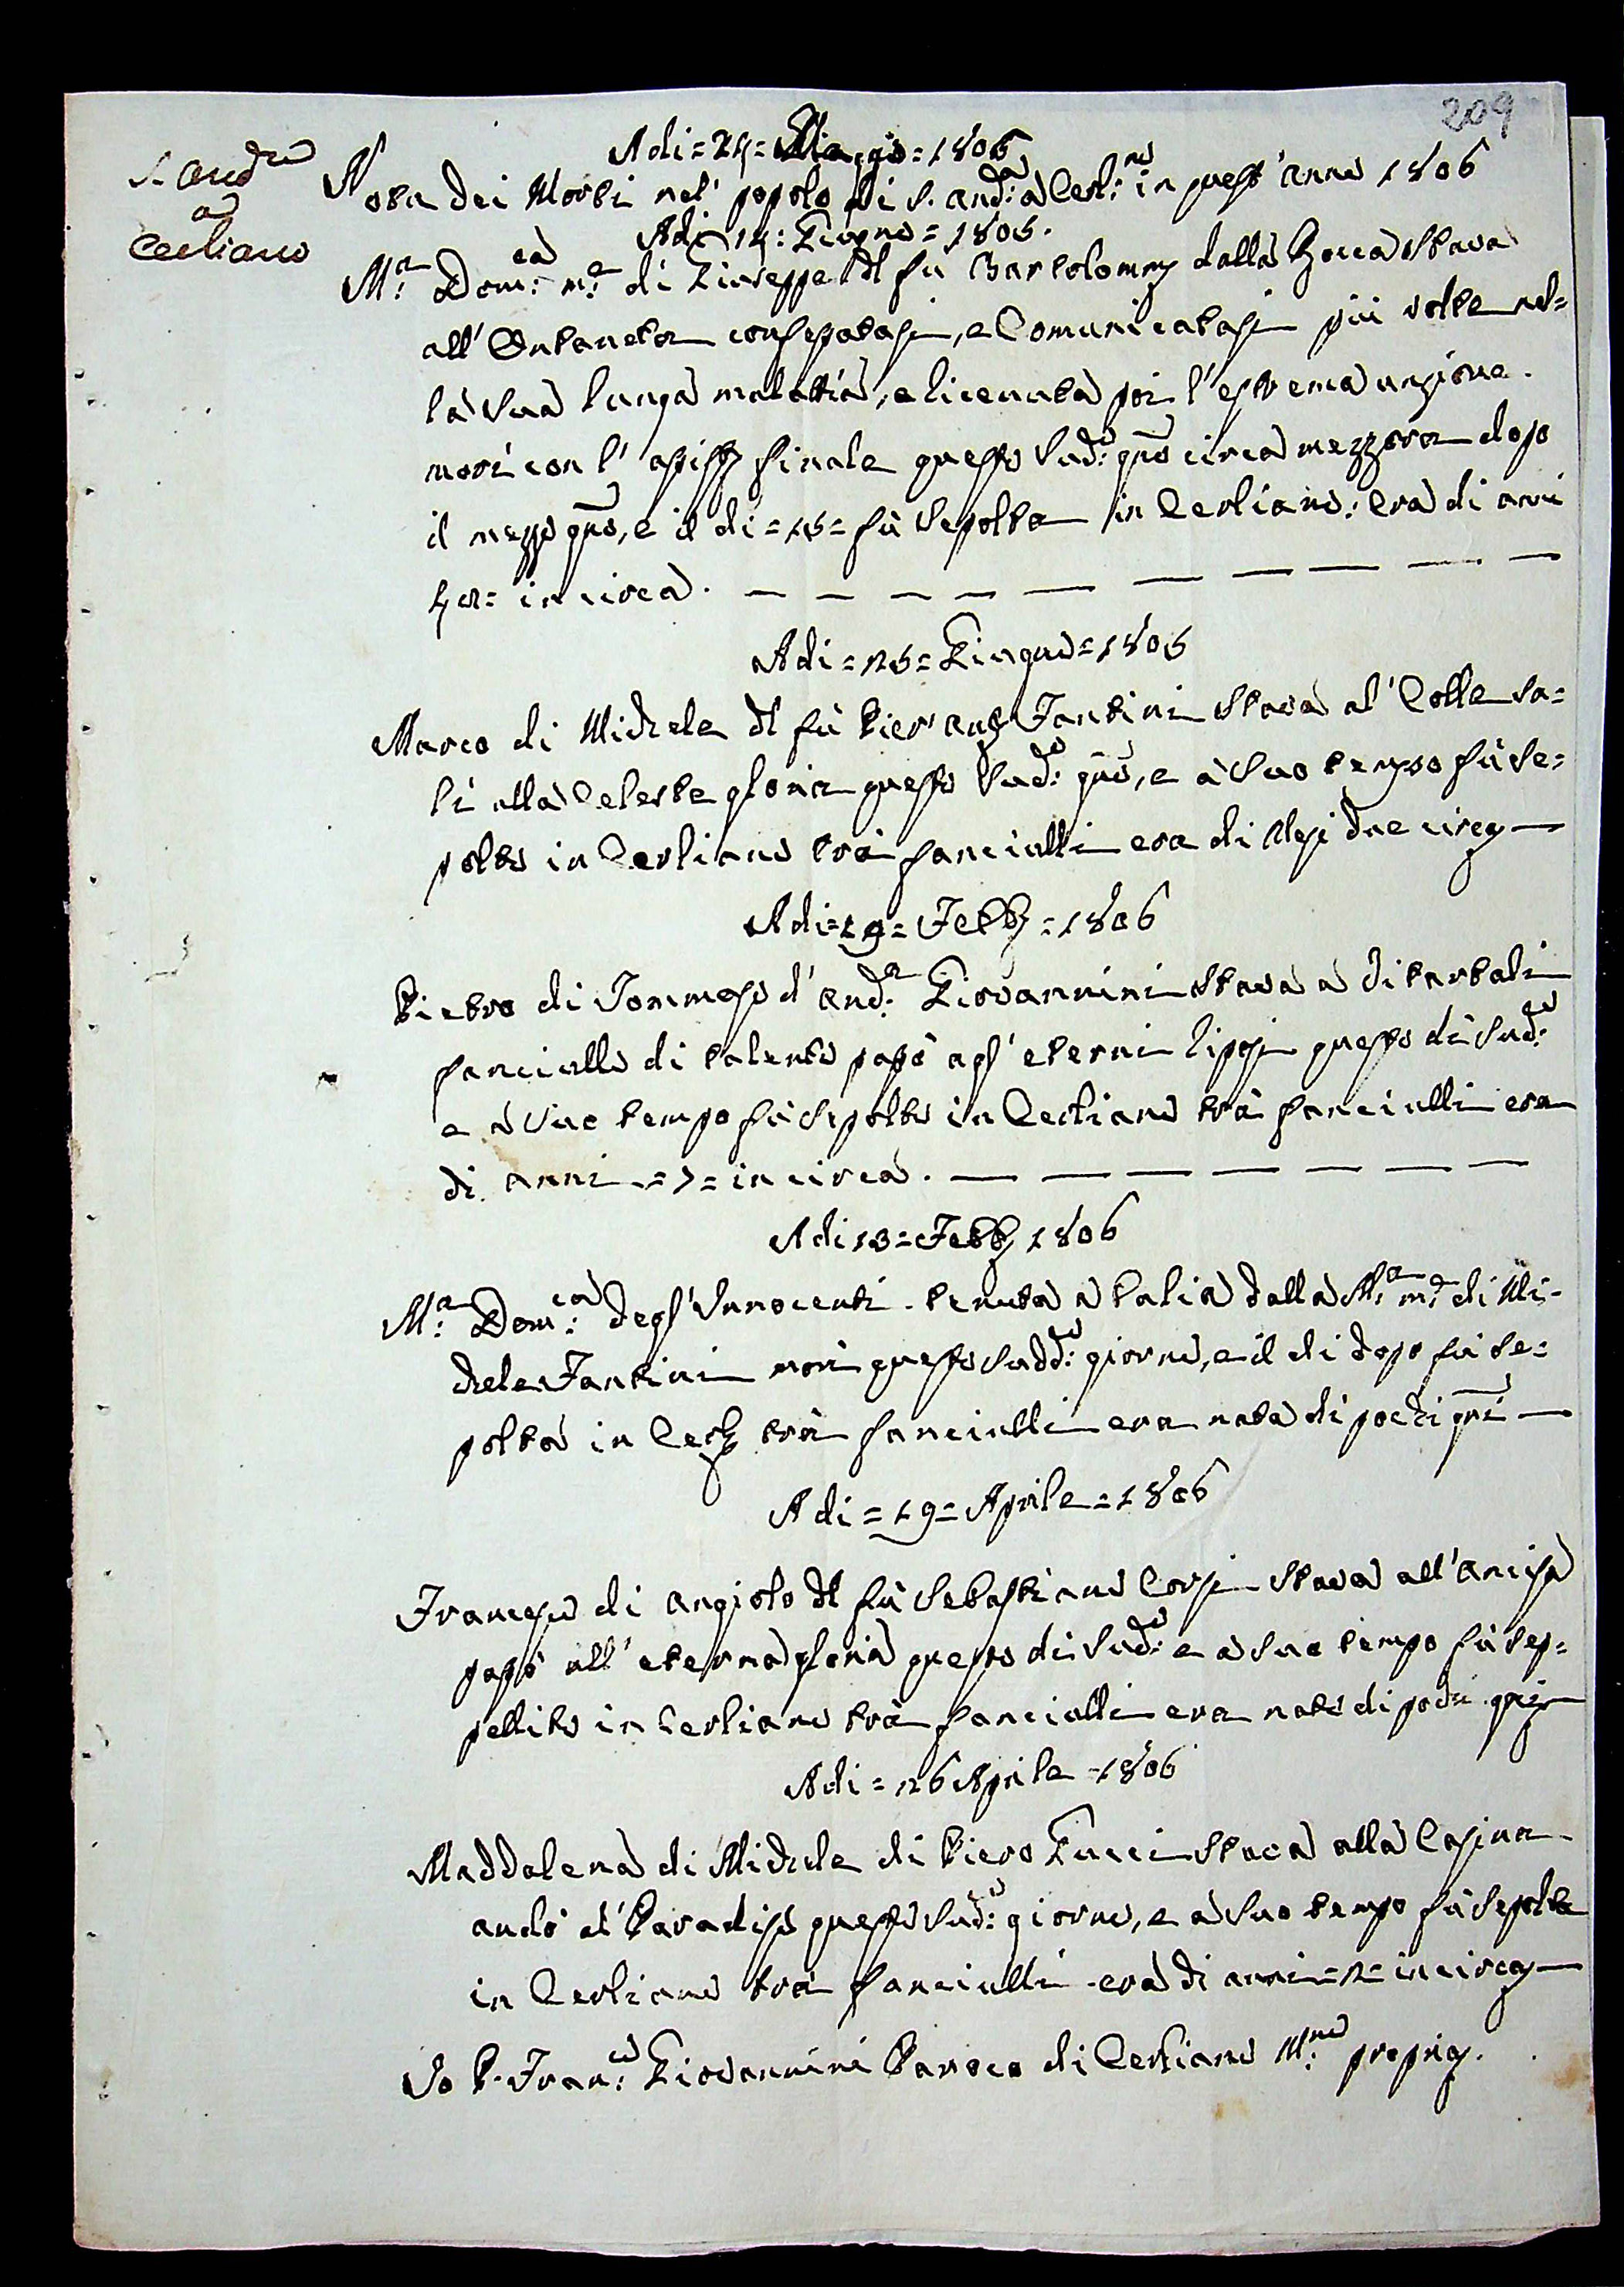 209
S. Andrea
a
Cerliano
Adi = 24 = Maggio = 1806
Nota dei Morti nel' popolo di S. And:a a Cerl:no in quest' anno 1806
Adi 14: Giugno = 1805.
M:a Dom:ca m:e di Giuseppe dl fù Bartolommo dalla Rocca Stava
all' confessatasi, e Comunicatasi più volte nel=
la Sua lunga malattia, e licevuta poi l'estrema unzione.
morì con l' assistza finale questo Sud:o gno circa mezzora dopo
il mezzo gno, e il di = 15 = fù Sepolta in Cerliano: era di anni
in circa. — — — — — — — — — —
Adi = 25 = Giugno = 1805
Marco di Michele dl fù Pier' Ango Fantini Stava al' Colle sa=
lì alla Celeste gloria questo Sud:o gno, e à Suo tempo fù Se=
polto in Cerliano trà fanciulli era di Mesi due circa —
Adi = 19 = Febbo = 1806
Pietro di Tommaso d' And:a Giovannini Stava a
fanciullo di talento passò agl' eterni liposi questo dì Sud:o
e a Suo tempo fù Sepolto in Cerliano trà fanciulli era
di anni = 7 = in circa. — — — — — — —
Adi 13 = Febbo 1806
M:a Dom:ca degl' Innocenti. tenuta a Balia dalla M:a m:e di Mi=
chele Fantini morì questo Sudd:o giorno, e il di dopo fù Se=
polta in Cerlo trà fanciulli era nata di pochi gni —
Adi = 19 = Aprile = 1806
Francesco di Angiolo dl fù Sebastiano Corsi Stava all' Ancisa
passò all' eterna gloria questo di Sud:o e a Suo tempo fù Sep=
pellito in Cerliano trà fanciulli era nato di pochi gni
Adi = 26 Aprile = 1806
Maddalena di Michele di Piero Gucci Stava alla Casina
andò al' Paradiso questo Sud:o giorno, e a Suo tempo fù Sepolta
in Cerliano trà fanciulli. era di anni = 2 = in circa —
Io P. Fran:co Giovannini Paroco di Cerliano M:no propria.